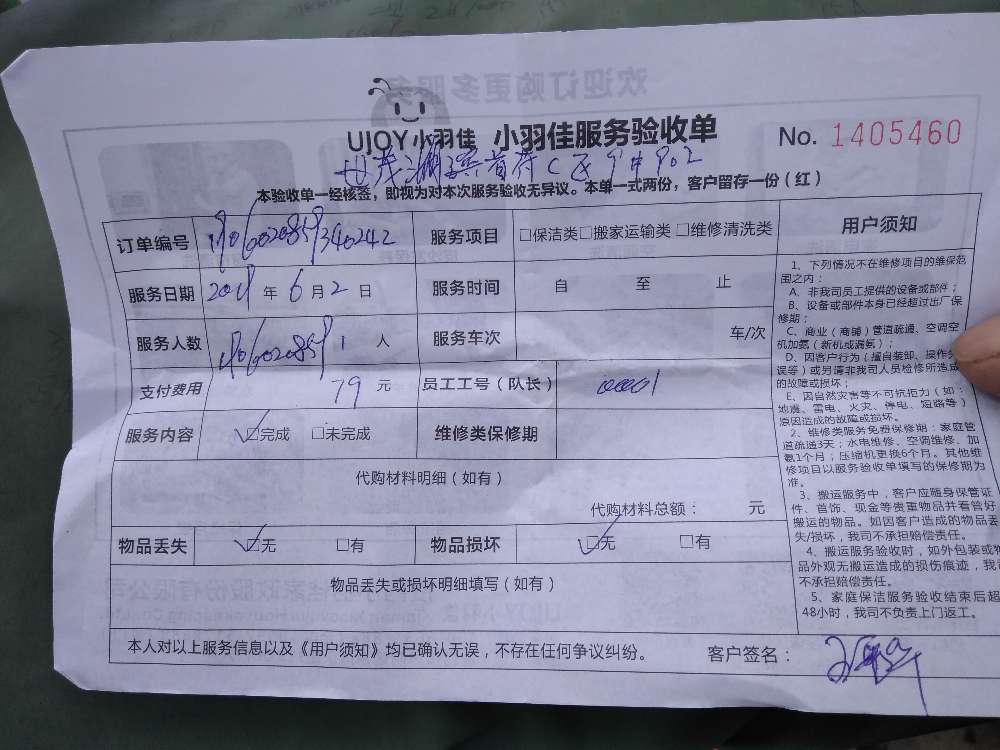 UJOY小羽佳 小羽佳服务验收单 No. 1405460
本验收单一经核签，即视为对本次服务验收无异议。本单一式两份，客户留存一份（红）
订单编号 服务项目 □保洁类□搬家运输类□维修清洗类
服务日期 年 6 月 2 日 服务时间 自 至 止
服务人数 1 人 服务车次 车/次
支付费用 79 元 员工工号（队长） 00001
服务内容 ☑完成 □未完成 维修类保修期
代购材料明细（如有）
代购材料总额： 元
物品丢失 ☑无 □有 物品损坏 ☑无 □有
物品丢失或损坏明细填写（如有）
本人对以上服务信息以及《用户须知》均已确认无误，不存在任何争议纠纷。 客户签名：
用户须知
1、下列情况不在维修项目的维保范
围之内：
A、非我司员工提供的设备或部件；
B、设备或部件本身已经超过出厂保
修期；
C、商业（商铺）管道疏通、空调空
机加氨（新机或漏氨）；
D、因客户行为（擅自装卸、操作
误等）或另请非我司人员检修所造成
的故障或损坏；
E、因自然灾害等不可抗拒力（如：
地震、雷电、火灾、停电、短路等）
原因造成的故障或损坏。
2、维修类服务免费保修期：家庭管
道疏通3天；水电维修、空调维修、加
氨1个月；压缩机更换6个月。其他维
修项目以服务验收单填写的保修期为
准。
3、搬运服务中，客户应随身保管证
件、首饰、现金等贵重物品并看管好
搬运的物品。如因客户造成的物品丢
失/损坏，我司不承担赔偿责任。
4、搬运服务验收时，如外包装或物
品外观无搬运造成的损伤痕迹，我
不承担赔偿责任。
5、家庭保洁服务验收结束后超
48小时，我司不负责上门返工。